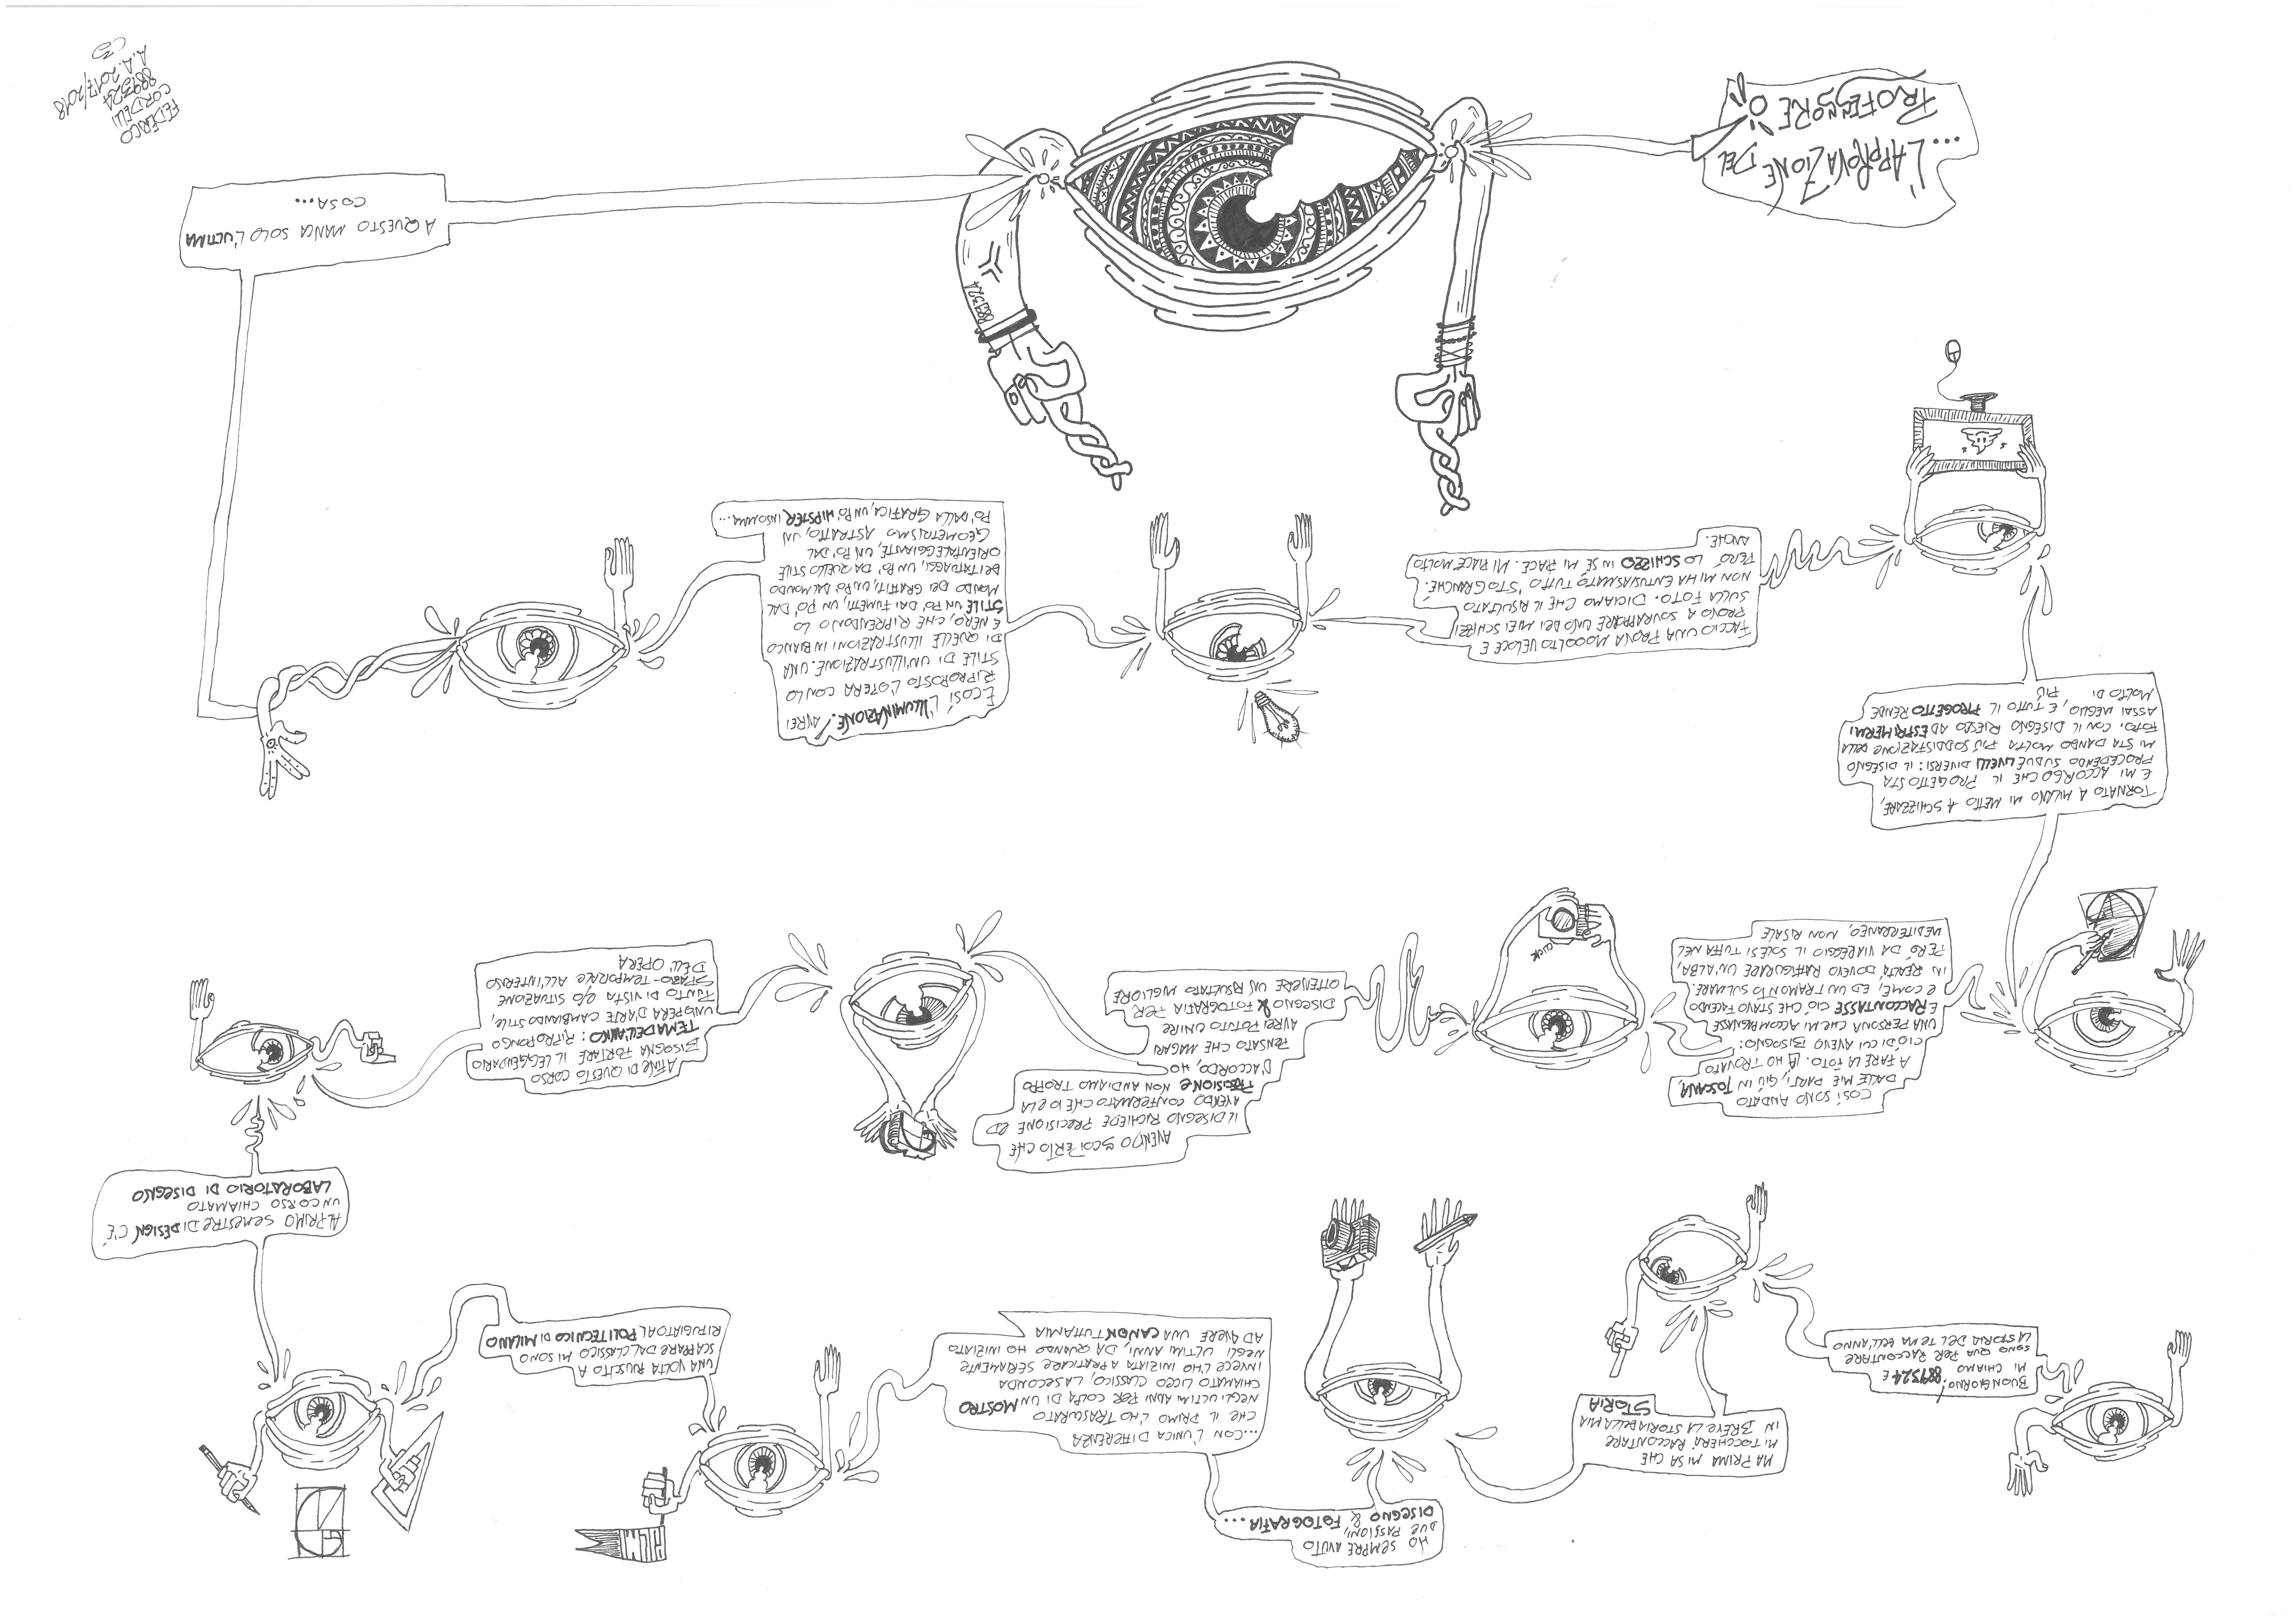 BUONGIORNO!
MI CHIAMO
889324 E
SONO QUA PER RACCONTARE
LA STORIA DEL TEMA DELL'ANNO
MA PRIMA MI SA CHE
MI TOCCHERÀ RACCONTARE
IN BREVE LA STORIA DELLA MIA
STORIA
HO SEMPRE AVUTO
DUE PASSIONI,
DISEGNO & FOTOGRAFIA...
...CON L'UNICA DIFFERENZA
CHE IL PRIMO L'HO TRASCURATO
NEGLI ULTIMI ANNI PER COLPA DI UN MOSTRO
CHIAMATO LICEO CLASSICO, LA SECONDA
INVECE L'HO INIZIATA A PRATICARE SERIAMENTE
NEGLI ULTIMI ANNI, DA QUANDO HO INIZIATO
AD AVERE UNA CANON TUTTA MIA
UNA VOLTA RIUSCITO A
SCAPPARE DAL CLASSICO MI SONO
RIFUGIATO AL POLITECNICO DI MILANO
AL PRIMO SEMESTRE DI DESIGN C'È
UN CORSO CHIAMATO
LABORATORIO DI DISEGNO
A FINE DI QUESTO CORSO
BISOGNA PORTARE IL LEGGENDARIO
TEMA DELL'ANNO: RIPROPONGO
UN'OPERA D'ARTE CAMBIANDO STILE,
PUNTO DI VISTA E/O SITUAZIONE
SPAZIO-TEMPORALE ALL'INTERNO
DELL'OPERA
AVENDO SCOPERTO CHE
IL DISEGNO RICHIEDE PRECISIONE ED
AVENDO CONFERMATO CHE IO E LA
PRECISIONE NON ANDIAMO TROPPO
D'ACCORDO, HO
PENSATO CHE MAGARI
AVREI POTUTO UNIRE
DISEGNO & FOTOGRAFIA PER
OTTENERE UN RISULTATO MIGLIORE
CLICK
COSÌ SONO ANDATO
DALLE MIE PARTI, GIÙ IN TOSCANA,
A FARE LA FOTO. LÀ HO TROVATO
CIÒ DI CUI AVEVO BISOGNO:
UNA PERSONA CHE MI ACCOMPAGNASSE
E RACCONTASSE CIÒ CHE STAVO FACENDO
E COME, ED UN TRAMONTO SUL MARE.
IN REALTÀ DOVEVO RAFFIGURARE UN'ALBA,
PERÒ DA VIAREGGIO IL SOLE SI TUFFA NEL
MEDITERRANEO, NON RISALE
TORNATO A MILANO MI METTO A SCHIZZARE,
E MI ACCORGO CHE IL PROGETTO STA
PROCEDENDO SU DUE LIVELLI DIVERSI: IL DISEGNO
MI STA DANDO MOLTA PIÙ SODDISFAZIONE DELLA
FOTO. CON IL DISEGNO RIESCO AD ESPRIMERMI
ASSAI MEGLIO, E TUTTO IL PROGETTO RENDE
MOLTO DI PIÙ
FACCIO UNA PROVA MOOOLTO VELOCE E
PROVO A SOVRAPPORRE UNO DEI MIEI SCHIZZI
SULLA FOTO. DICIAMO CHE IL RISULTATO
NON MI HA ENTUSIASMATO TUTTO 'STO GRANCHÉ.
PERÒ LO SCHIZZO IN SÉ MI PIACE. MI PIACE MOLTO
ANCHE.
E COSÌ L'ILLUMINAZIONE. AVREI
RIPROPOSTO L'OPERA CON LO
STILE DI UN'ILLUSTRAZIONE. UNA
DI QUELLE ILLUSTRAZIONI IN BIANCO
E NERO, CHE RIPRENDONO LO
STILE UN PO' DAI FUMETTI, UN PO' DAL
MONDO DEI GRAFFITI, UN PO' DAL MONDO
DEI TATUAGGI, UN PO' DA QUELLO STILE
ORIENTALEGGIANTE, UN PO' DAL
GEOMETRISMO ASTRATTO, UN
PO' DALLA GRAFICA, UN PO' HIPSTER INSOMMA...
A QUESTO MANCA SOLO L'ULTIMA
COSA...
889324
...L'APPROVAZIONE DEL
PROFESSORE
FEDERICO
CORDELLI
889324
A.A. 2017/2018
C3